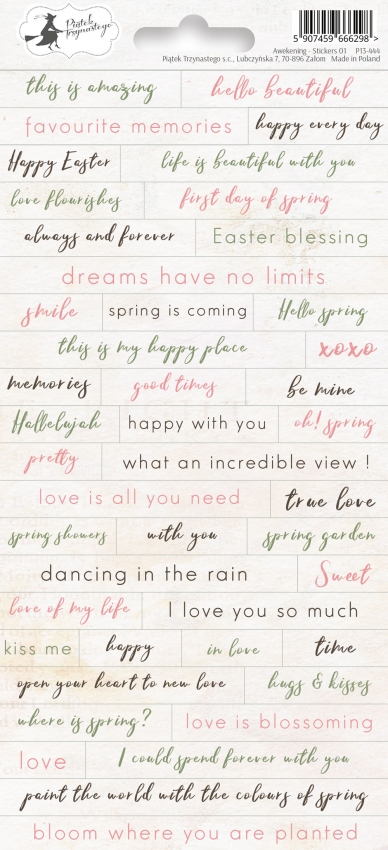 Piątek Trzynastego
5 907459 666298 >
Awekening - Stickers 01 P13-444
Piątek Trzynastego s.c., Lubczyńska 7, 70-896 Załom Made in Poland
this is amazing hello beautiful
favourite memories happy every day
Happy Easter life is beautiful with you
love flourishes first day of spring
always and forever Easter blessing
dreams have no limits
smile spring is coming Hello spring
this is my happy place xoxo
memories good times be mine
Hallelujah happy with you oh! spring
pretty what an incredible view !
love is all you need true love
spring showers with you spring garden
dancing in the rain Sweet
love of my life I love you so much
kiss me happy in love time
open your heart to new love hugs & kisses
where is spring? love is blossoming
love I could spend forever with you
paint the world with the colours of spring
bloom where you are planted